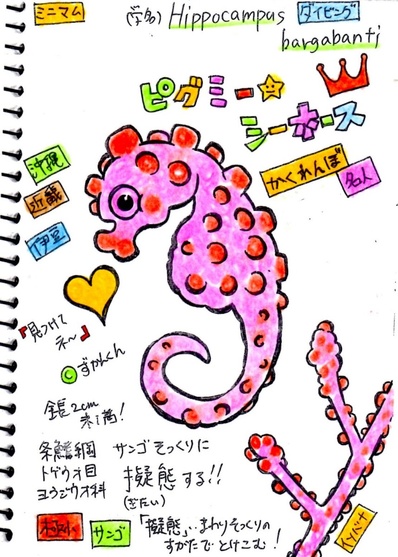 ミニマム
(学名) Hippocampus
bargabanti
ダイビング
ピグミー
シーホース
かくれんぼ
名人
沖縄
近畿
伊豆
『見つけて
ネ〜』
©ずかんくん
全長2cm
未満!
条鰭綱
トゲウオ目
ヨウジウオ科
サンゴそっくりに
擬態する!!
(ぎたい)
極小
サンゴ
「擬態」‥まわりそっくりの
すがたでとけこむ!